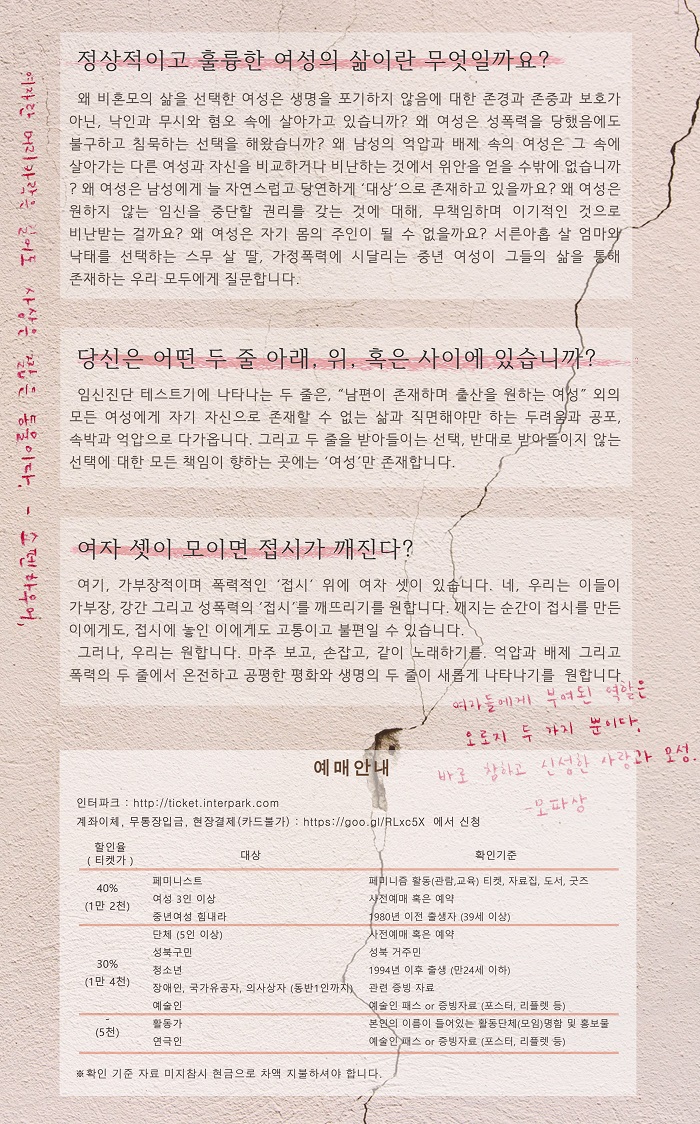 정상적이고 훌륭한 여성의 삶이란 무엇일까요?
왜 비혼모의 삶을 선택한 여성은 생명을 포기하지 않음에 대한 존경과 존중과 보호가
아닌, 낙인과 무시와 혐오 속에 살아가고 있습니까? 왜 여성은 성폭력을 당했음에도
불구하고 침묵하는 선택을 해왔습니까? 왜 남성의 억압과 배제 속의 여성은 그 속에
살아가는 다른 여성과 자신을 비교하거나 비난하는 것에서 위안을 얻을 수밖에 없습니까
? 왜 여성은 남성에게 늘 자연스럽고 당연하게 ‘대상’으로 존재하고 있을까요? 왜 여성은
원하지 않는 임신을 중단할 권리를 갖는 것에 대해, 무책임하며 이기적인 것으로
비난받는 걸까요? 왜 여성은 자기 몸의 주인이 될 수 없을까요? 서른아홉 살 엄마와
낙태를 선택하는 스무 살 딸, 가정폭력에 시달리는 중년 여성이 그들의 삶을 통해
존재하는 우리 모두에게 질문합니다.
여자란 머리카락은 길어도 사상은 짧은 동물이다. - 쇼펜하우어,
당신은 어떤 두 줄 아래, 위, 혹은 사이에 있습니까?
임신진단 테스트기에 나타나는 두 줄은, “남편이 존재하며 출산을 원하는 여성” 외의
모든 여성에게 자기 자신으로 존재할 수 없는 삶과 직면해야만 하는 두려움과 공포,
속박과 억압으로 다가옵니다. 그리고 두 줄을 받아들이는 선택, 반대로 받아들이지 않는
선택에 대한 모든 책임이 향하는 곳에는 ‘여성’만 존재합니다.
여자 셋이 모이면 접시가 깨진다?
여기, 가부장적이며 폭력적인 ‘접시’ 위에 여자 셋이 있습니다. 네, 우리는 이들이
가부장, 강간 그리고 성폭력의 ‘접시’를 깨뜨리기를 원합니다. 깨지는 순간이 접시를 만든
이에게도, 접시에 놓인 이에게도 고통이고 불편일 수 있습니다.
그러나, 우리는 원합니다. 마주 보고, 손잡고, 같이 노래하기를. 억압과 배제 그리고
폭력의 두 줄에서 온전하고 공평한 평화와 생명의 두 줄이 새롭게 나타나기를 원합니다
여자들에게 부여된 역할은
오로지 두 가지 뿐이다.
바로 참하고 신성한 사랑과 모성.
-모파상
예매안내
인터파크 : http://ticket.interpark.com
계좌이체, 무통장입금, 현장결제(카드불가) : https://goo.gl/RLxc5X 에서 신청
할인율 대상 확인기준
( 티켓가 )
40%
(1만 2천)
페미니스트 페미니즘 활동(관람,교육) 티켓, 자료집, 도서, 굿즈
여성 3인 이상 사전예매 혹은 예약
중년여성 힘내라 1980년 이전 출생자 (39세 이상)
30%
(1만 4천)
단체 (5인 이상) 사전예매 혹은 예약
성북구민 성북 거주민
청소년 1994년 이후 출생 (만24세 이하)
장애인, 국가유공자, 의사상자 (동반1인까지) 관련 증빙 자료
예술인 예술인 패스 or 증빙자료 (포스터, 리플렛 등)
-
(5천)
활동가 본인의 이름이 들어있는 활동단체(모임)명함 및 홍보물
연극인 예술인 패스 or 증빙자료 (포스터, 리플렛 등)
※확인 기준 자료 미지참시 현금으로 차액 지불하셔야 합니다.